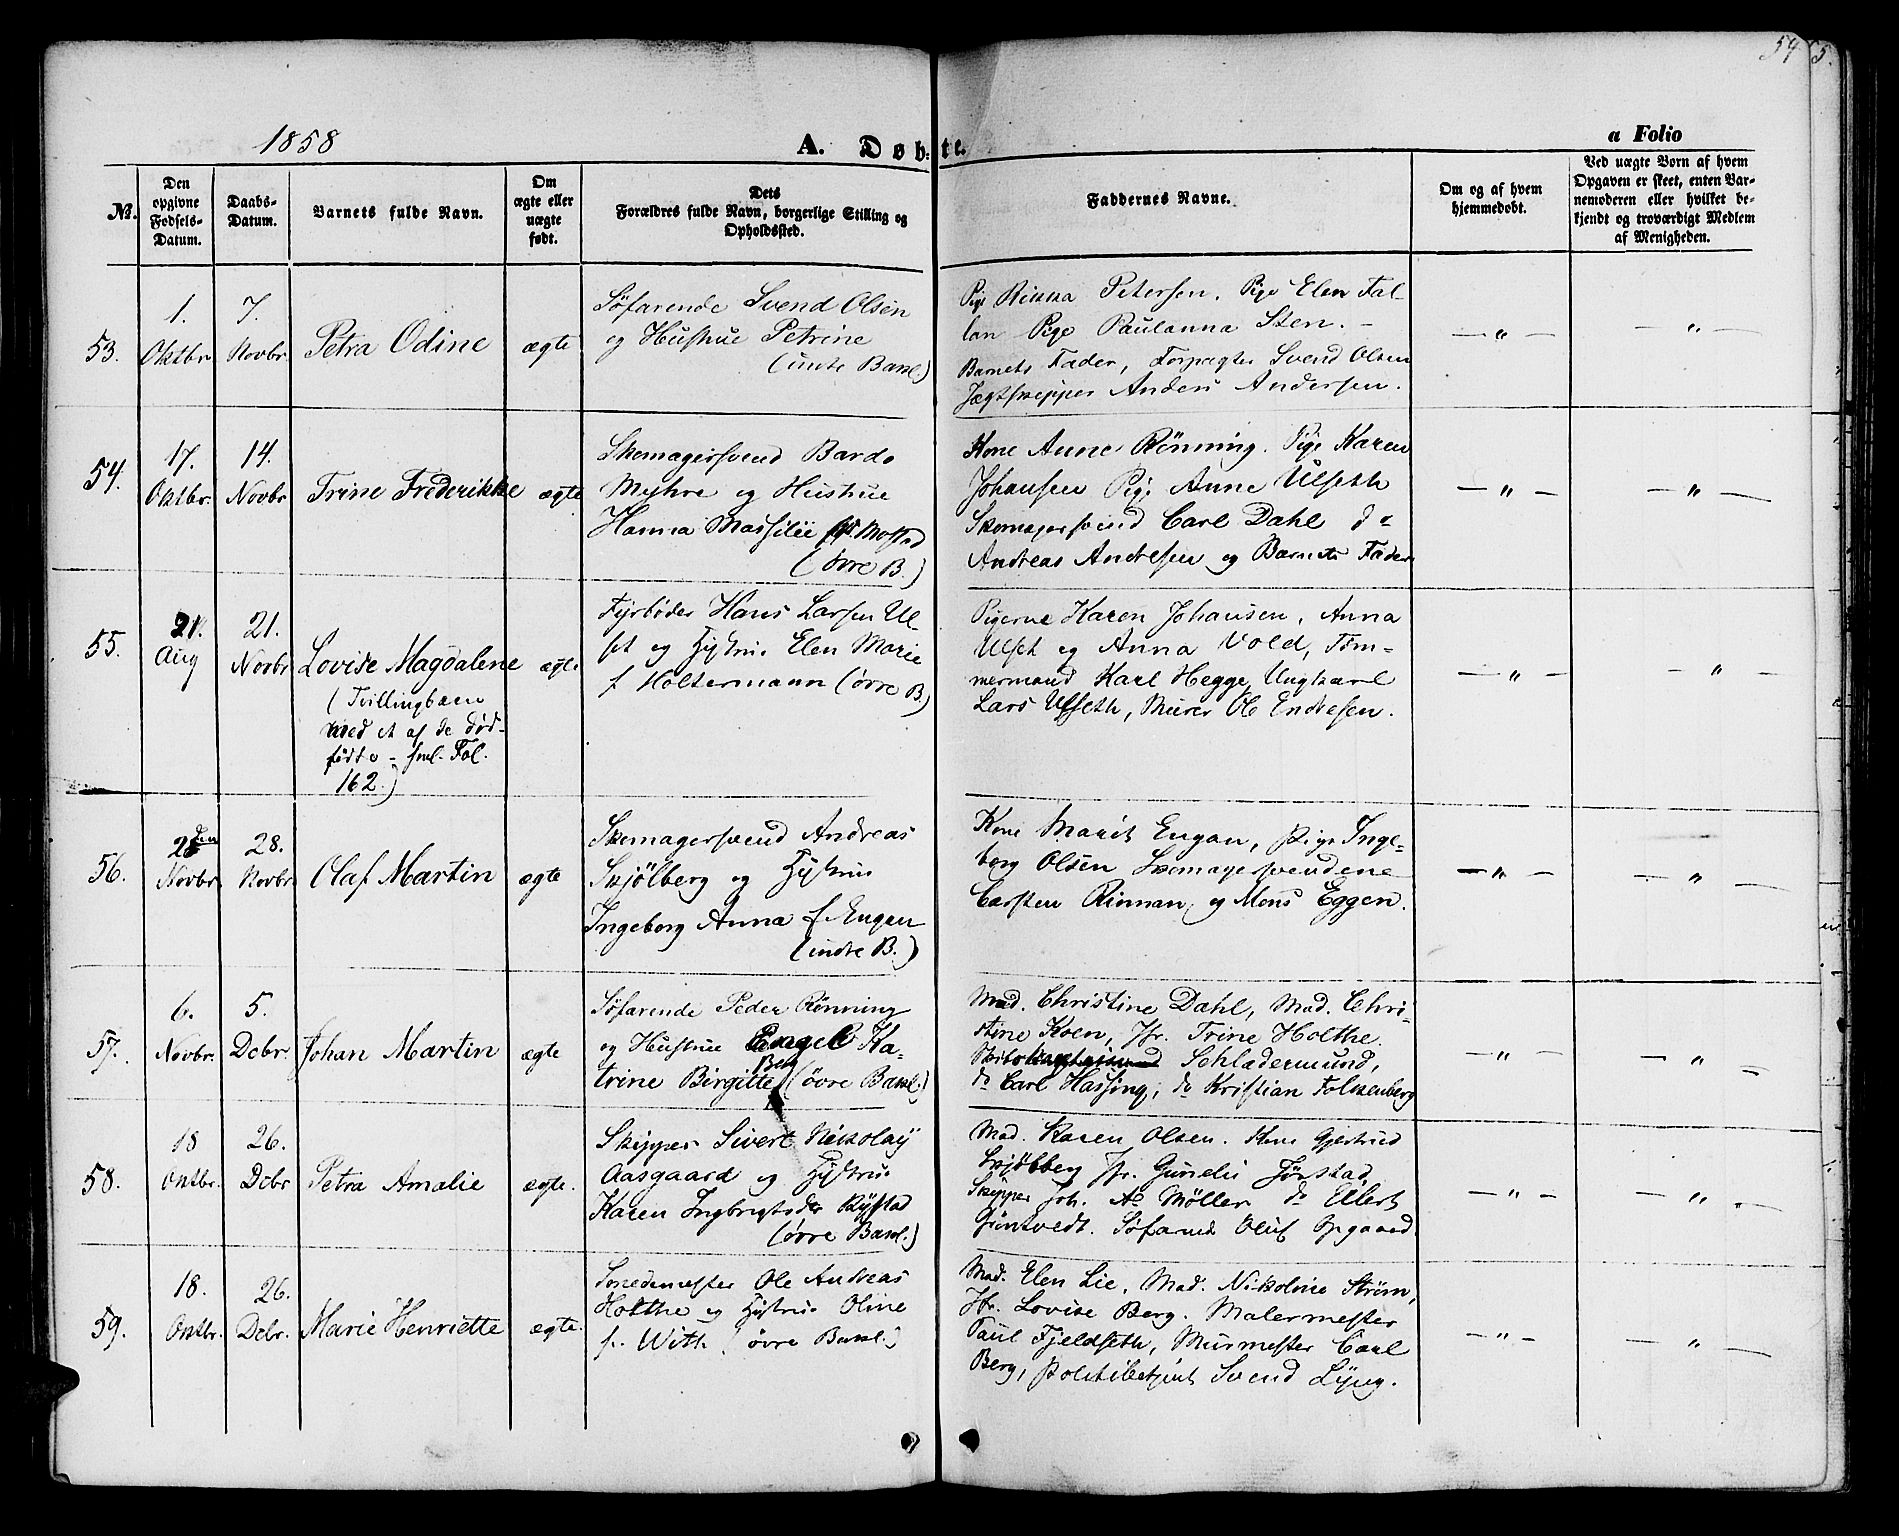 54
5.
1858
A. Døbte.
a Folio
No.
Den opgivne Fødsels-Datum.
Daabs-Datum.
Barnets fulde Navn.
Om ægte eller uægte født.
Dets Forældres fulde Navn, borgerlige Stilling og Opholdssted.
Faddernes Navne.
Om og af hvem hjemmedøbt.
Ved uægte Børn af hvem Opgaven er skeet, enten Barnemoderen eller hvilket bekjendt og troværdigt Medlem af Menigheden.
53.
1. Oktbr
7. Novbr.
Petra Odine
ægte
Søfarende Svend Olsen
og Hustrue Petrine
(indre Bakl.)
Pige Rikka Petersen. Pige Elen Fal-
lan Pige Paulanna Sten. -
Barnets Fader, Forpagter Svend Olsen
Jægtskipper Anders Andersen.
— " —
— " —
54.
17. Oktbr.
14. Novbr
Trine Frederikke
ægte
Skomagersvend Bardo
Myhre og Hustrue
Hanna Massilie Mostad
(øvre B.)
Kone Anne Rønning. Pige Karen
Johansen Pige Anne Ulseth
Skomagersvend Carl Dahl do
Andreas Andresen og Barnets Fader
— " —
— " —
55.
21. Aug
21. Novbr
Lovise Magdalene
(Tvillingbarn
med et af de død-
fødte - sml. Fol.
162.)
ægte
Fyrbøder Hans Larsen Ul-
set og Hustrue Elen Marie
f Holtermann (øvre B.)
Pigerne Karen Johansen, Anna
Ulset og Anna Vold, Tøm-
mermand Karl Hegge, Ungkarl
Lars Ulseth, Murer Ole Endresen.
— " —
— " —
56.
28den Novbr.
28. Novbr
Olaf Martin
ægte
Skomagersvend Andreas
Skjølberg og Hustrue
Ingeborg Anna f. Engan
(indre B.)
Kone Marit Engan, Pige Inge-
borg Olsen Skomagersvendene
Carsten Rinnan og Mons Eggen.
— " —
— " —
57.
6. Novbr.
5. Dcbr.
Johan Martin
ægte
Søfarende Peder Rønning
og Hustrue Engel Ka-
trine Birgitte (øvre Bakl.)
Mad. Christine Dahl, Mad. Chri-
stine Koen, Jfr. Trine Holthe.
Schladermund,
do Carl Hassing, do Kristian Folkenberg
— " —
— " —
58.
18 Oktbr.
26. Dcbr
Petra Amalie
ægte.
Skipper Sivert Nikolaÿ
Aasgaard og Hustrue
Karen Ingbrigtsdr Rÿstad
(øvre Bakl.)
Mad. Karen Olsen. Kone Gjertrud
Skjølberg Jfr. Gunelie Førstad
Skipper Joh. A. Møller do Ellert
Grøntvedt. Søfarende Oluf Opgaard.
— " —
— " —
59.
18. Oktbr.
26. Dcbr.
Marie Henriette
ægte.
Smedemester Ole Andreas
Holthe og Hustrue Oline
f. With (øvre Bakl.)
Mad. Elen Lie, Mad. Nikoline Strøm,
Jfr. Lovise Berg. Malermester
Paul Fjeldseth, Murmester Carl
Berg, Politibetjent Svend Lÿng.
— " —
— " —